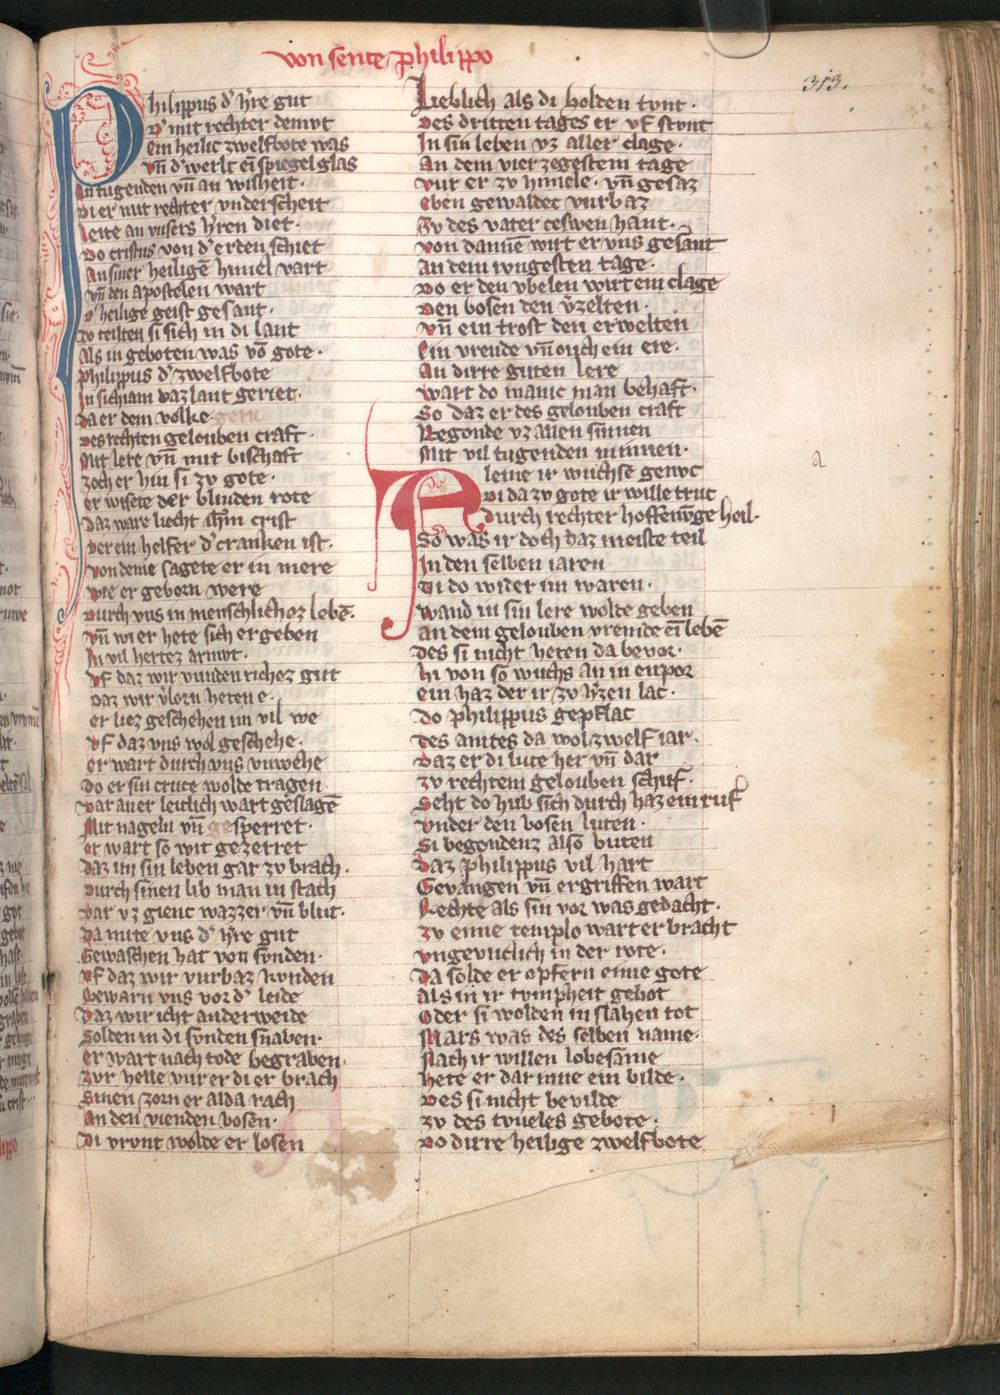 von sente philippo
313.
Philippus d' h're gut
D' mit rechter demvt
Ein heilic zwelfbote was
vn̄ d' werlt ei̅ spiegel glas
An tugenden vn̄ an wisheit·
Di er mit rechter vnderscheit
leite an vnsers h'ren diet·
Do cristus von d' erden schiet
An siner heilige̅ himel vart
vn̄ den apostelen wart
d' heilige geist gesant·
do teilten si sich in di lant
Als in geboten was vo̅ gote·
Philippus d' zwelfbote
In sichiam daz lant geriet·
Da er dem volke
Des rechten gelouben craft·
Mit lere vn̄ mit bischaft
zoch er hin si zv gote·
er wisete der blinden rote
daz ware liecht
der ein helfer d' cranken ist·
von deme sagete er in mere
wie er geborn were
Durch vns in menschlichez lebe̅·
vn̄ wi er hete sich ergeben
In vil hertez armvt·
vf daz wir vunden richez gut
Daz wir v'lorn heten e·
er liez geschehen im vil we
vf daz vns wol geschehe·
er wart durch vns vnwehe
Do er sin cruce wolde tragen·
Dar an er leitlich wart geslage̅
Mit nageln vn̄ gesperret·
er wart so wit gezerret
daz im sin leben gar zv brach·
Durch sinen lib man in stach
Dar vz gienc wazzer vn̄ blut·
Da mite vns d' h're gut
Gewaschen hat von sunden·
vf daz wir vurbaz kunden
Bewarn vns vor d' leide
Daz wir icht anderweide
Solden in di sunden snaben·
er wart nach tode begraben·
zvr helle vur er di er brach
Sinen zorn er alda rach
An den vienden bosen·
Di vrunt wolde er losen
Lieblich als di holden tvnt·
Des dritten tages er vf stvnt
In sin leben vz aller clage·
An dem vierzegestem tage
vur er zv himele· vn̄ gesaz
eben gewaldec vurbaz
Zv des vater ceswen hant·
von danne wirt er vns gesant
An dem iungesten tage·
Do er den vbelen wirt ein clage
Den bosen den v'zelten·
vn̄ ein trost den erwelten
Ein vreude vn̄ ouch ein ere·
An dirre guten lere
wart do manic man behaft·
So daz er des gelouben craft
Begonde vz allen sinnen
Mit vil tugenden minnen·
Aleine ir wuchse genvc
Di da zv gote ir wille truc
durch rechter hoffenv̅ge heil·
So was ir doch daz meiste teil
In den selben iaren
Di do wider im waren·
wand in sin lere wolde geben
an dem gelouben vremde ei̅ lebe̅
des si nicht heten da bevor·
hi von so wuchs an in enpor
ein haz der ir zv h'zen lac·
do philippus gepflac
des amtes da wol zwelf iar·
Daz er di lute her vn̄ dar
zv rechtem gelouben schuf·
Seht do hub sich durch haz ein ruf
vnder den bosen luten·
Si begondenz also buten
daz philippus vil hart
Gevangen vn̄ ergriffen wart
Rechte als sin vor was gedacht·
zv eime templo wart er bracht
vngevuclich in der rote·
Da solde er opfern eime gote
Als in ir tvmpheit gebot
Oder si wolden in slahen tot
Mars was des selben name·
Nach ir willen lobesame
hete er dar inne ein bilde·
Des si nicht bevilde
zv des tvueles gebote·
Do dirre heilige zwelfbote
a